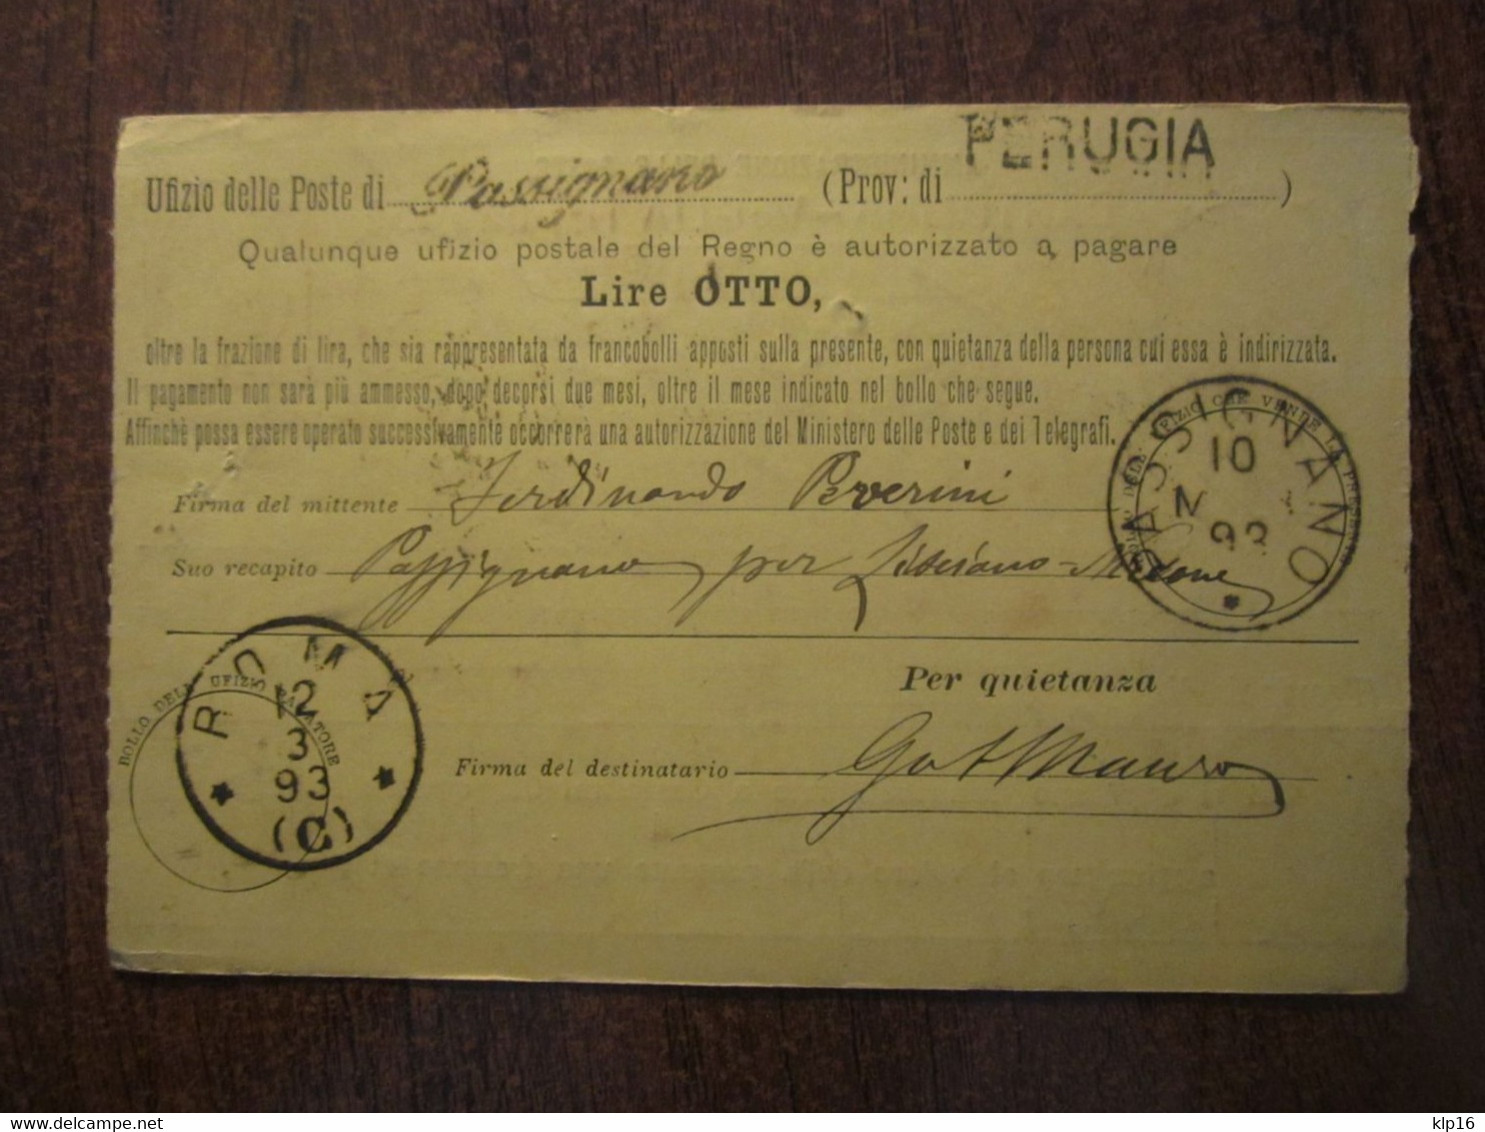 PERUGIA
Ufizio delle Poste di Passignano (Prov: di )
Qualunque ufizio postale del Regno è autorizzato a pagare
Lire OTTO,
oltre la frazione di lira, che sia rappresentata da francobolli apposti sulla presente, con quietanza della persona cui essa è indirizzata.
Il pagamento non sarà più ammesso, dopo decorsi due mesi, oltre il mese indicato nel bollo che segue.
Affinchè possa essere operato successivamente occorrerà una autorizzazione del Ministero delle Poste e dei Telegrafi.
PASSIGNANO
10
M
93
Firma del mittente Ferdinando Peverini
Suo recapito Passignano per
ROMA
12
3
93
(C)
BOLLO DELL' UFIZIO PAGATORE
Per quietanza
Firma del destinatario
delcampe.net
klp16